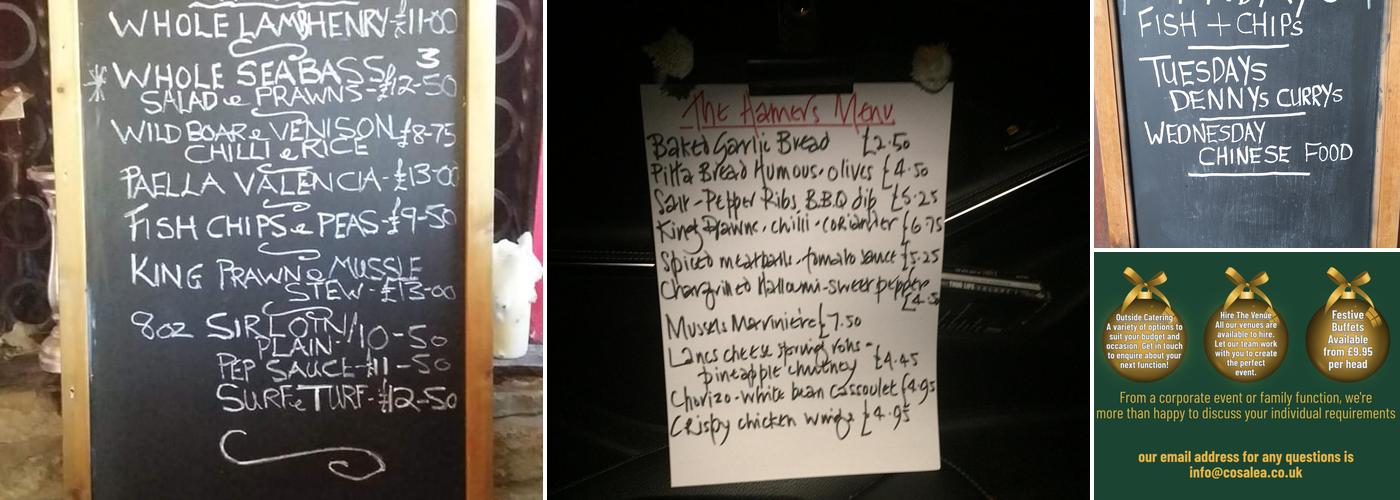 WHOLE LAMB HENRY-£11-00
3
WHOLE SEABASS £12-50
SALAD e PRAWNS-
WILD BOAR e VENISON £8-75
CHILLI e RICE
PAELLA VALENCIA-£13-00
FISH CHIPS e PEAS-£9-50
KING PRAWN e MUSSLE
STEW-£13-00
8oz SIRLOIN/10-50
PLAIN-
PEP SAUCE-£11-50
SURF e TURF-£12-50
The Hamers Menu
Baked Garlic Bread £2.50
Pitta Bread Humous-olives £4.50
Salt-Pepper Ribs B.B.Q dip £5.25
King Prawns, chilli-coriander £6.75
Spiced meatballs, tomato sauce £5.25
Chargrilled Halloumi-sweet pepper
£4.50
Mussels Mariniére £7.50
Lancs cheese spring rolls-
pineapple chutney £4.45
Chorizo-white bean cassoulet £4.95
Crispy chicken wings £4.95
FISH + CHIPS
TUESDAYS
DENNYS CURRYS
WEDNESDAY
CHINESE FOOD
Outside Catering
A variety of options to
suit your budget and
occasion. Get in touch
to enquire about your
next function!
Hire The Venue
All our venues are
available to hire.
Let our team work
with you to create
the perfect
event.
Festive
Buffets
Available
from £9.95
per head
From a corporate event or family function, we're
more than happy to discuss your individual requirements
our email address for any questions is
info@cosalea.co.uk